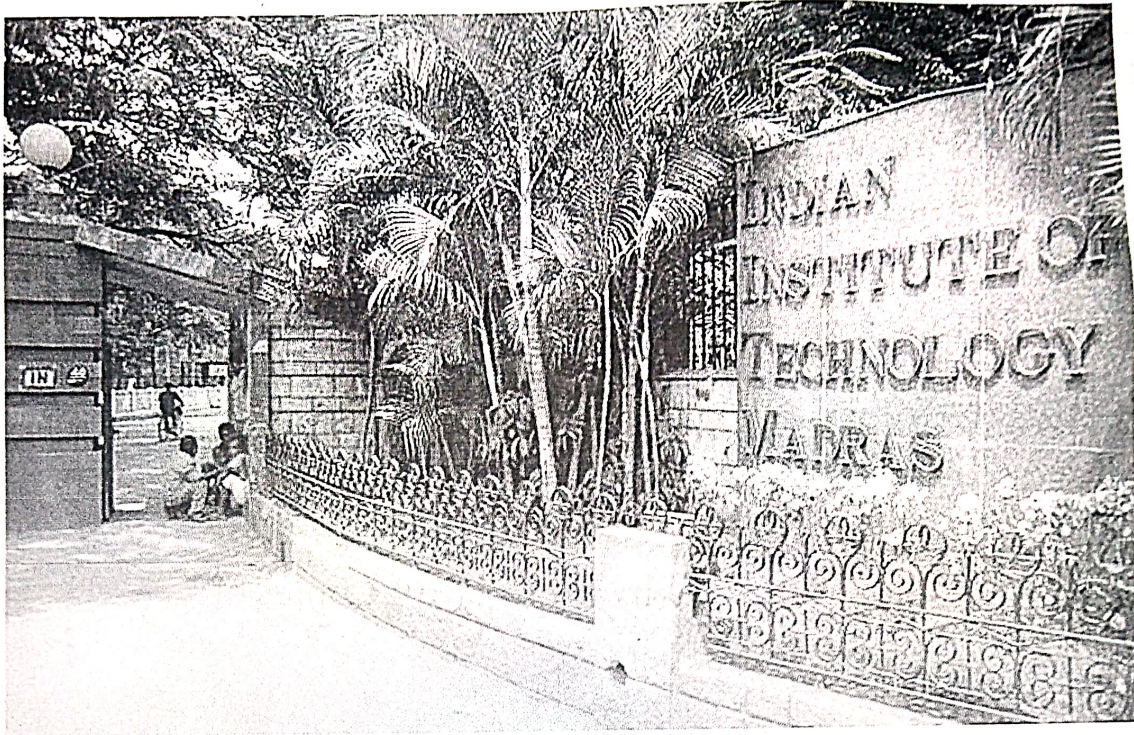 IN
INDIAN
INSTITUTE OF
TECHNOLOGY
MADRAS